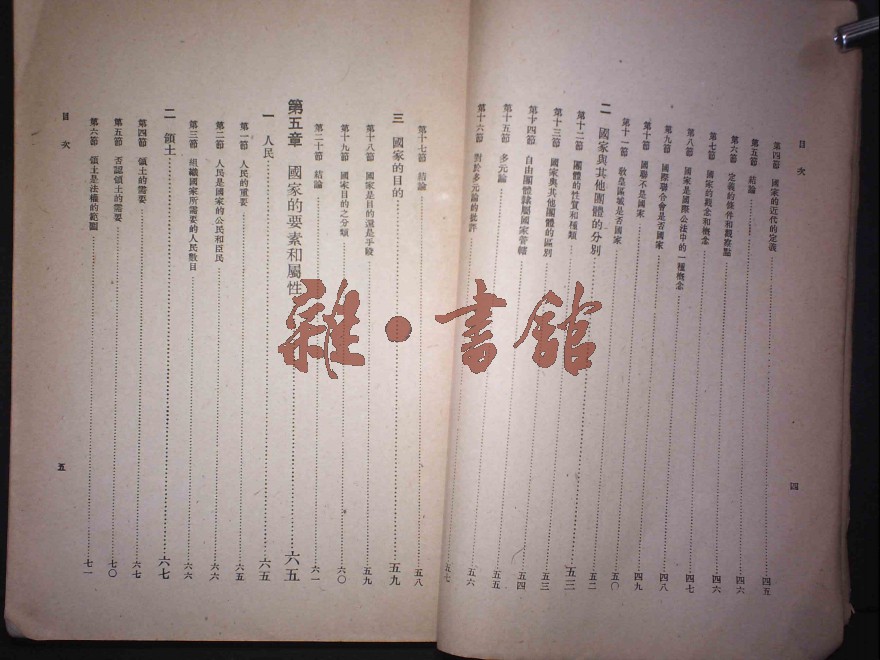 目次
四
第四節 國家的近代的定義 四五
第五節 結論 四六
第六節 定義的條件和觀察點 四六
第七節 國家的觀念和概念 四六
第八節 國家是國際公法中的一種概念 四七
第九節 國際聯合會是否國家 四八
第十節 國聯不是國家 四九
第十一節 教皇區域是否國家 五〇
二 國家與其他團體的分別 五二
第十二節 團體的性質和種類 五三
第十三節 國家與其他團體的區別 五三
第十四節 自由團體隸屬國家管轄 五四
第十五節 多元論 五五
第十六節 對於多元論的批評 五六
第十七節 結論 五八
三 國家的目的 五九
第十八節 國家是目的還是手段 五九
第十九節 國家目的之分類 六〇
第二十節 結論 六一
第五章 國家的要素和屬性 六五
一 人民 六五
第一節 人民的重要 六五
第二節 人民是國家的公民和臣民 六六
第三節 組織國家所需要的人民數目 六六
二 領土 六七
第四節 領土的需要 六七
第五節 否認領土的需要 七〇
第六節 領土是法權的範圍 七一
目次
五
雜·書館